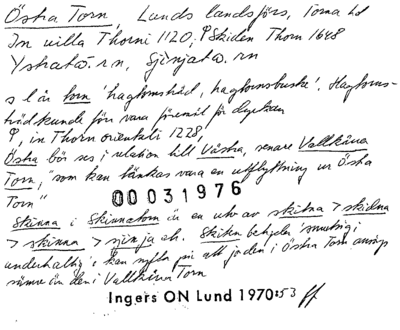 Östra Torn, Lunds landsförs, Torna hd
In villa Thorni 1120, Skiden Thorn 1648
r.n, r.n
s l är torn 'hagtornsträd, hagtornsbuske'. Hagtorns-
träd kunde förr vara föremål för dyrkan
in Thorn orientali 1228,
Östra bör ses i relation till Västra, senare Vallkärra
Torn, "som kan tänkas vara en utflyttning ur Östra
Torn"
00031976
Skinna i Skinnatorn är en utv av skitna > skidna
> skinna > Skiten betyder 'smutsig'
underhaltig' kan syfta på att jorden i Östra Torn ansågs
sämre än den i Vallkärra Torn
Ingers ON Lund 1970:53 ff